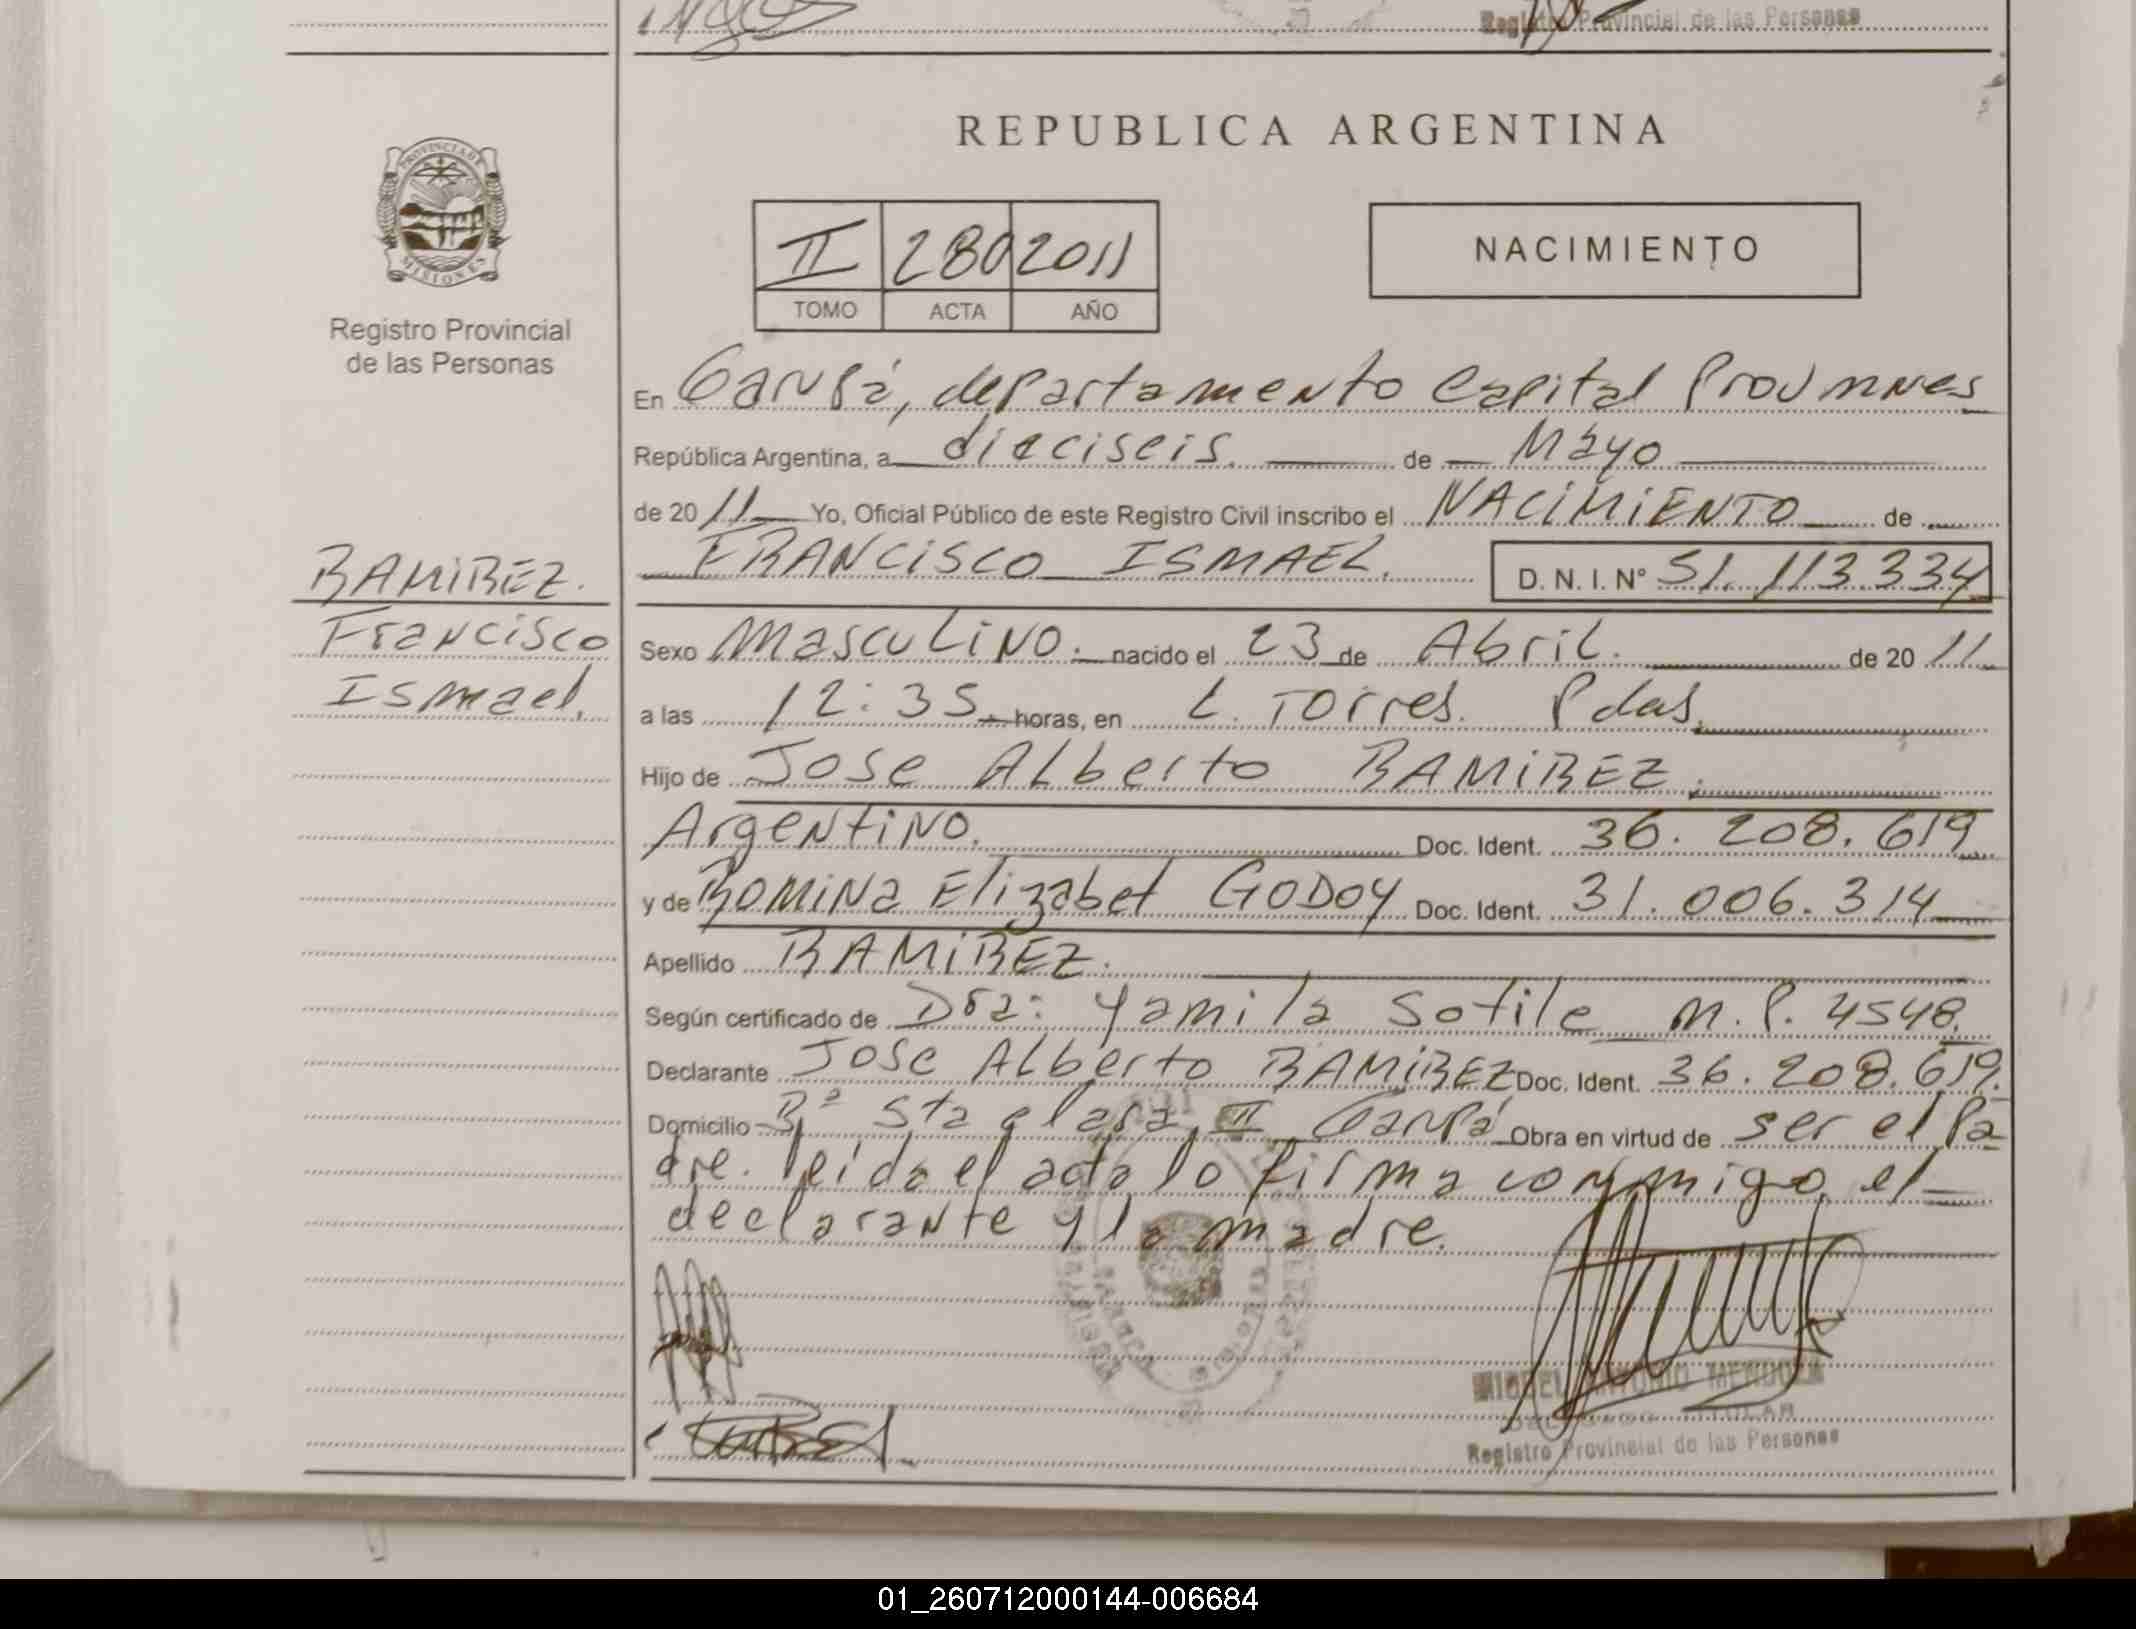 Registro Provincial de las Personas
PROVINCIA DE
MISIONES
Registro Provincial
de las Personas
REPUBLICA ARGENTINA
II 280 2011
TOMO ACTA AÑO
NACIMIENTO
En Garupá, departamento Capital Prov mnes
República Argentina, a dieciseis. de Mayo
de 20 11 Yo, Oficial Público de este Registro Civil inscribo el NACIMIENTO de
FRANCISCO ISMAEL. D. N. I. N° 51.113.334
RAMIREZ.
Francisco
Ismael.
Sexo Masculino. nacido el 23 de Abril. de 20 11
a las 12:35 horas, en L. Torres. Pdas.
Hijo de Jose Alberto RAMIREZ.
Argentino. Doc. Ident. 36.208.619
y de Romina Elizabet GODOY Doc. Ident. 31.006.314
Apellido RAMIREZ.
Según certificado de Dra: Yamila Sotile M.P. 4548.
Declarante Jose Alberto RAMIREZ Doc. Ident. 36.208.619.
Domicilio Bº Sta clara II Garupá Obra en virtud de ser el Pa
dre. leida el acta lo firma conmigo el
declarante y la madre.
MIGUEL ANTONIO MENDOZA
DELEGADO TITULAR
Registro Provincial de las Personas
01_260712000144-006684